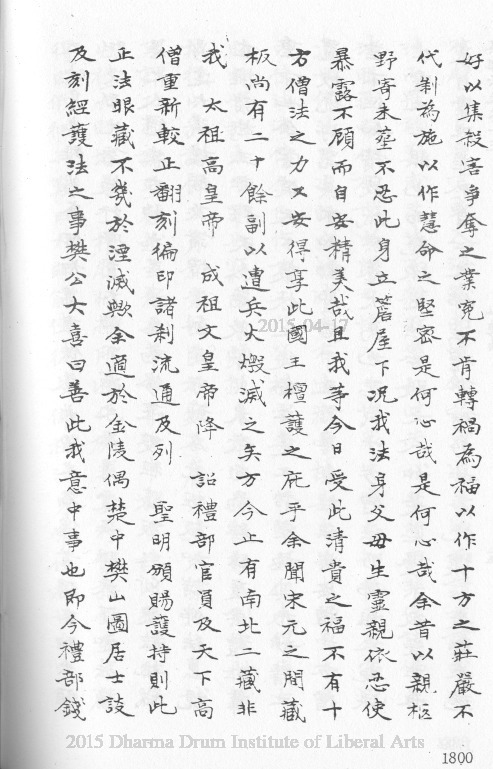 好以集殺害爭奪之業寃不肯轉禍為福以作十方之莊嚴不
代剃為施以作慧命之堅密是何心哉是何心哉余昔以親柩
野寄未塟不忍此身立簷厓下况我法身父母生靈親依忍使
暴露不顧而自安精美哉且我等今日受此清貴之福不有十
方僧法之力又安得享此國王檀護之庇乎余聞宋元之間藏
板尚有二十餘副以遭兵火燬滅之矣方今止有南北二藏非
我 太祖高皇帝 成祖文皇帝降 詔禮部官員及天下高
僧重新較正翻刻徧印諸剎流通及列 聖明頒賜護持則此
正法眼藏不幾於湮滅歟余適於金陵偶楚中樊山圖居士談
及刻經護法之事樊公大喜曰善此我意中事也即今禮部錢
2015-04-17
2015 Dharma Drum Institute of Liberal Arts
1800